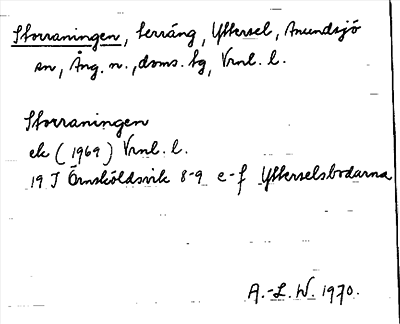 Storraningen, terräng, Ytersel, Anundsjö
sn, Ång. n., doms. hg, Vrnl. l.
Storraningen
ek (1969) Vrnl. l.
19 J Örnsköldsvik 8-9 e-f Ytterselsbodarna
A.-L. W. 1970.